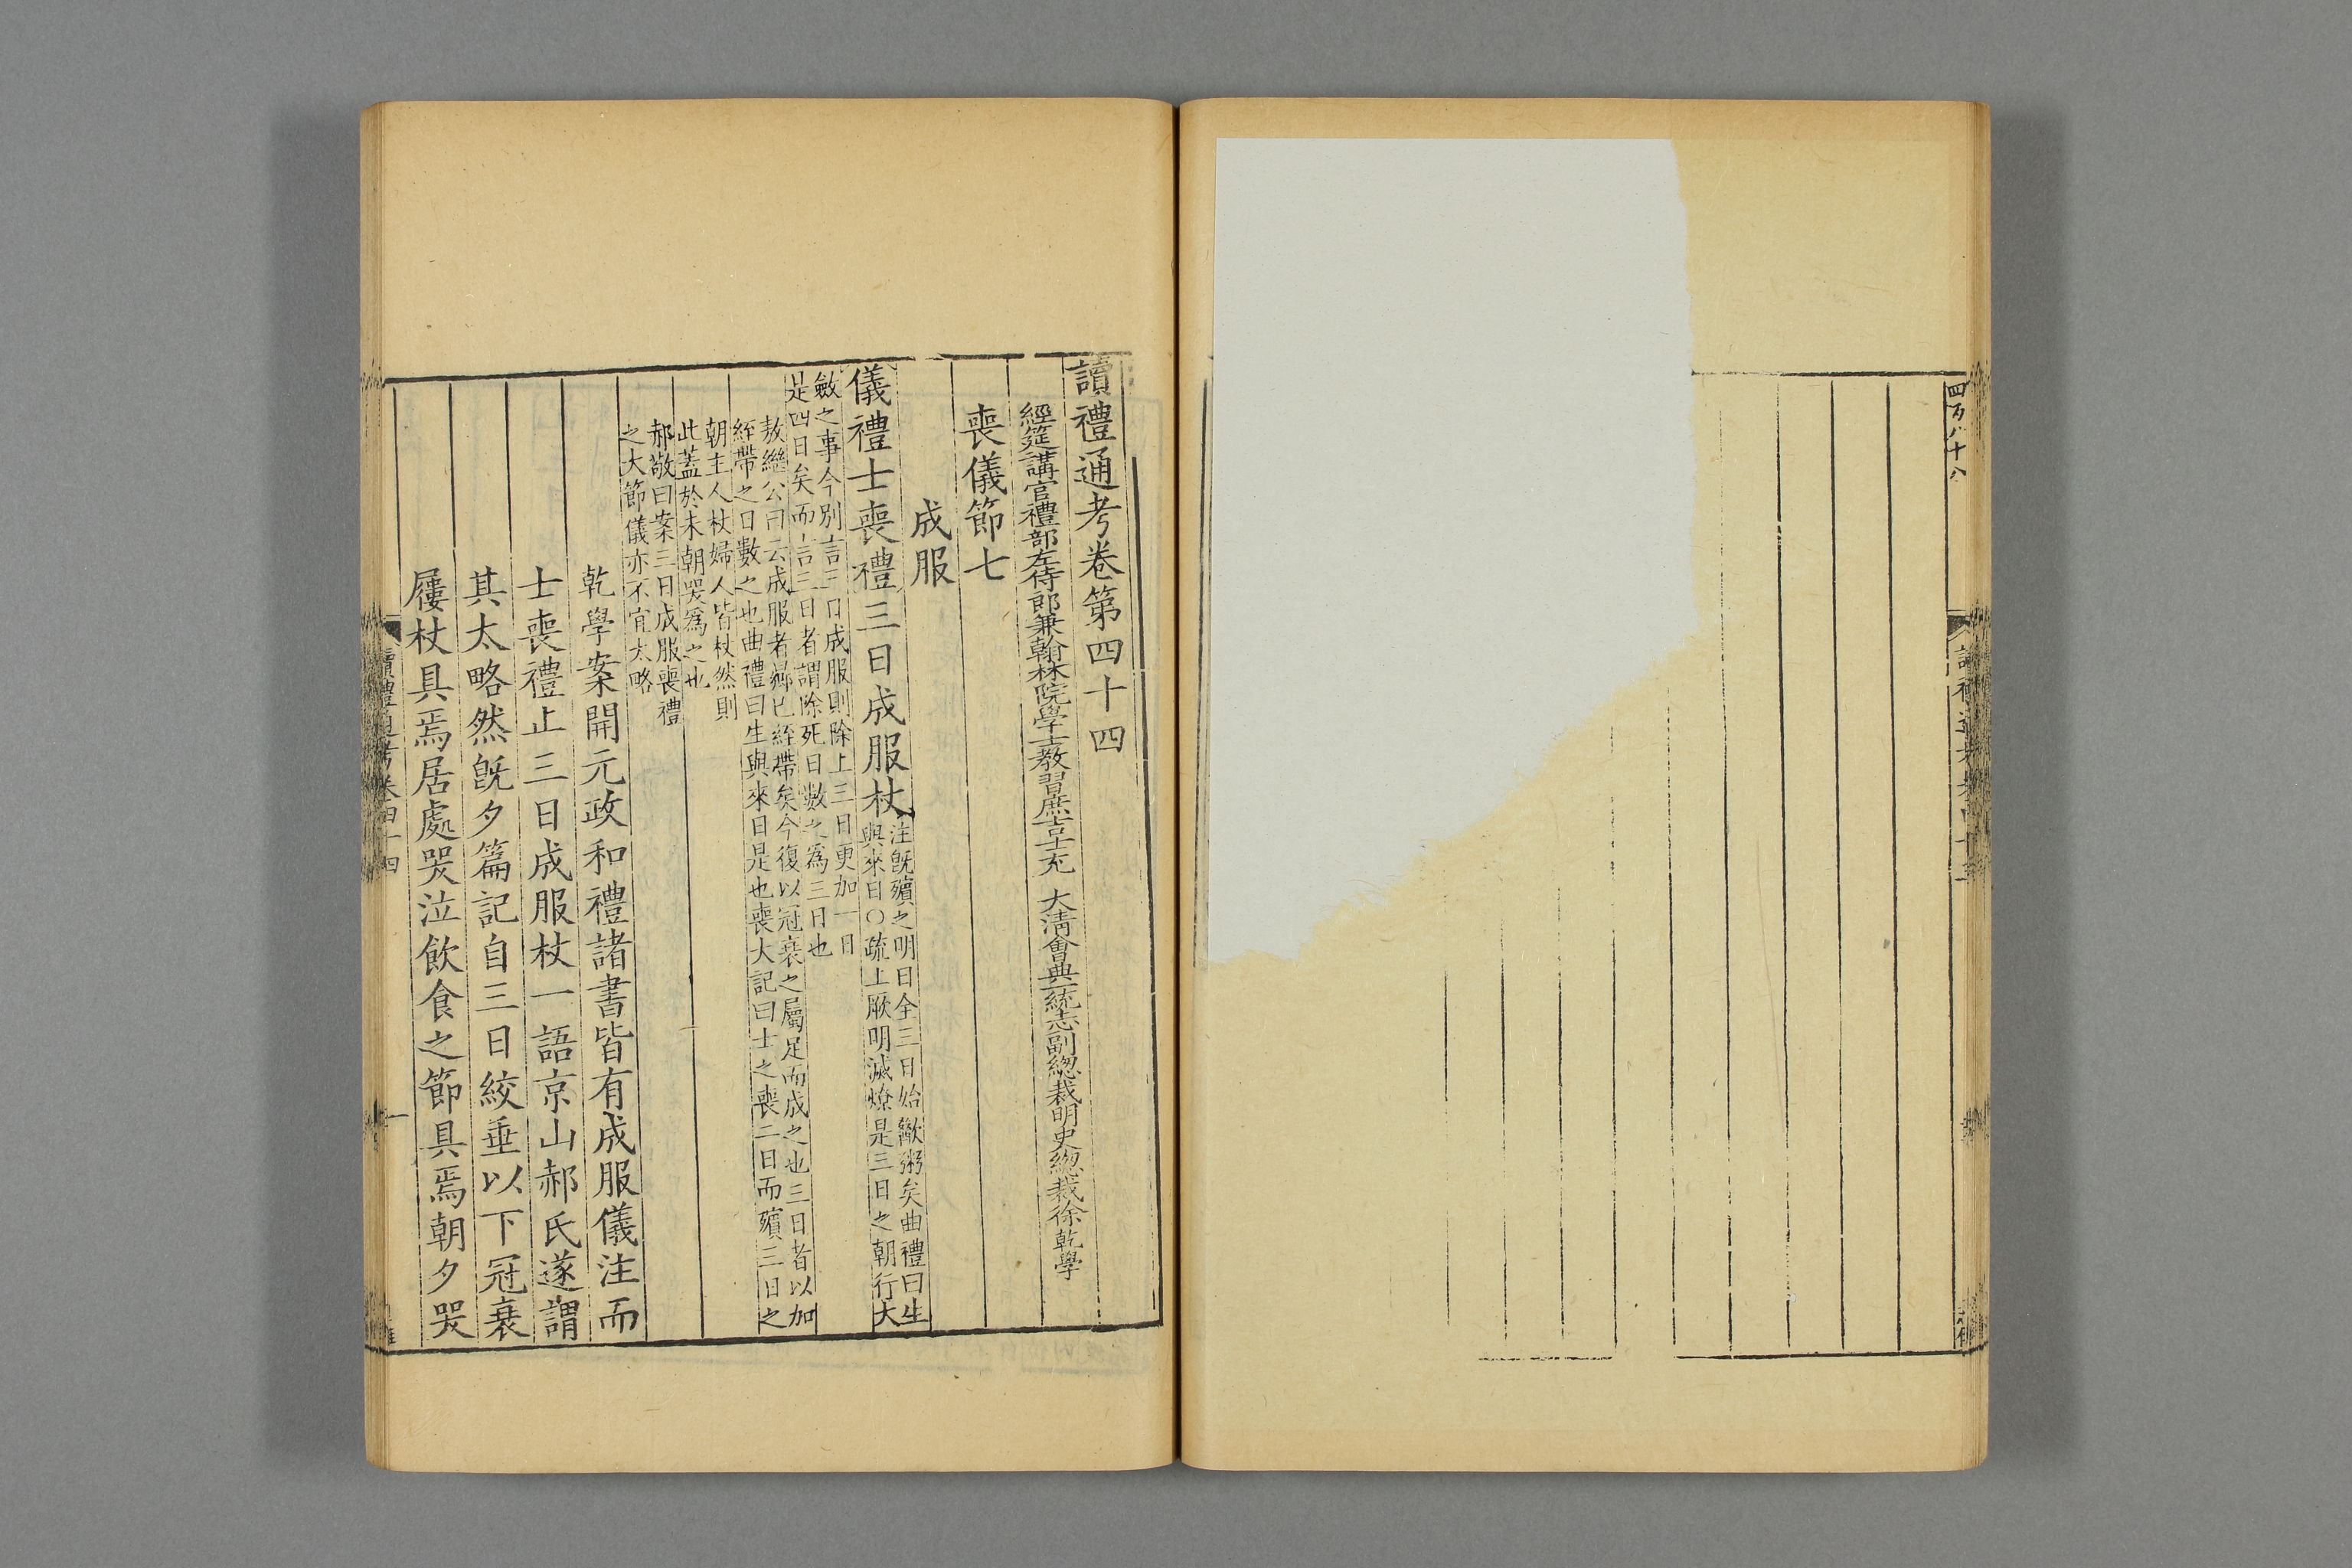 四百八十八
讀禮通考卷第四十四
經筵講官禮部左侍郎兼翰林院學士教習庶吉士充　大清會典一統志副總裁明史總裁徐乾學
喪儀節七
成服
儀禮士喪禮三日成服杖
注旣殯之明日全三日始歠粥矣曲禮曰生
與來日○疏上厥明滅燎是三日之朝行大
斂之事今別言三日成服則除上三日更加一日
是四日矣而言三日者謂除死日數之爲三日也
敖繼公曰云成服者曏已絰帶矣今復以冠衰之屬足而成之也三日者以加
絰帶之日數之也曲禮曰生與來日是也喪大記曰士之喪二日而殯三日之
朝主人杖婦人皆杖然則
此蓋於未朝哭爲之也
郝敬曰案三日成服喪禮
之大節儀亦不宜太略
乾學案開元政和禮諸書皆有成服儀注而
士喪禮止三日成服杖一語京山郝氏遂謂
其太略然旣夕篇記自三日絞垂以下冠衰
屨杖具焉居處哭泣飲食之節具焉朝夕哭
讀禮通考卷四十四
一